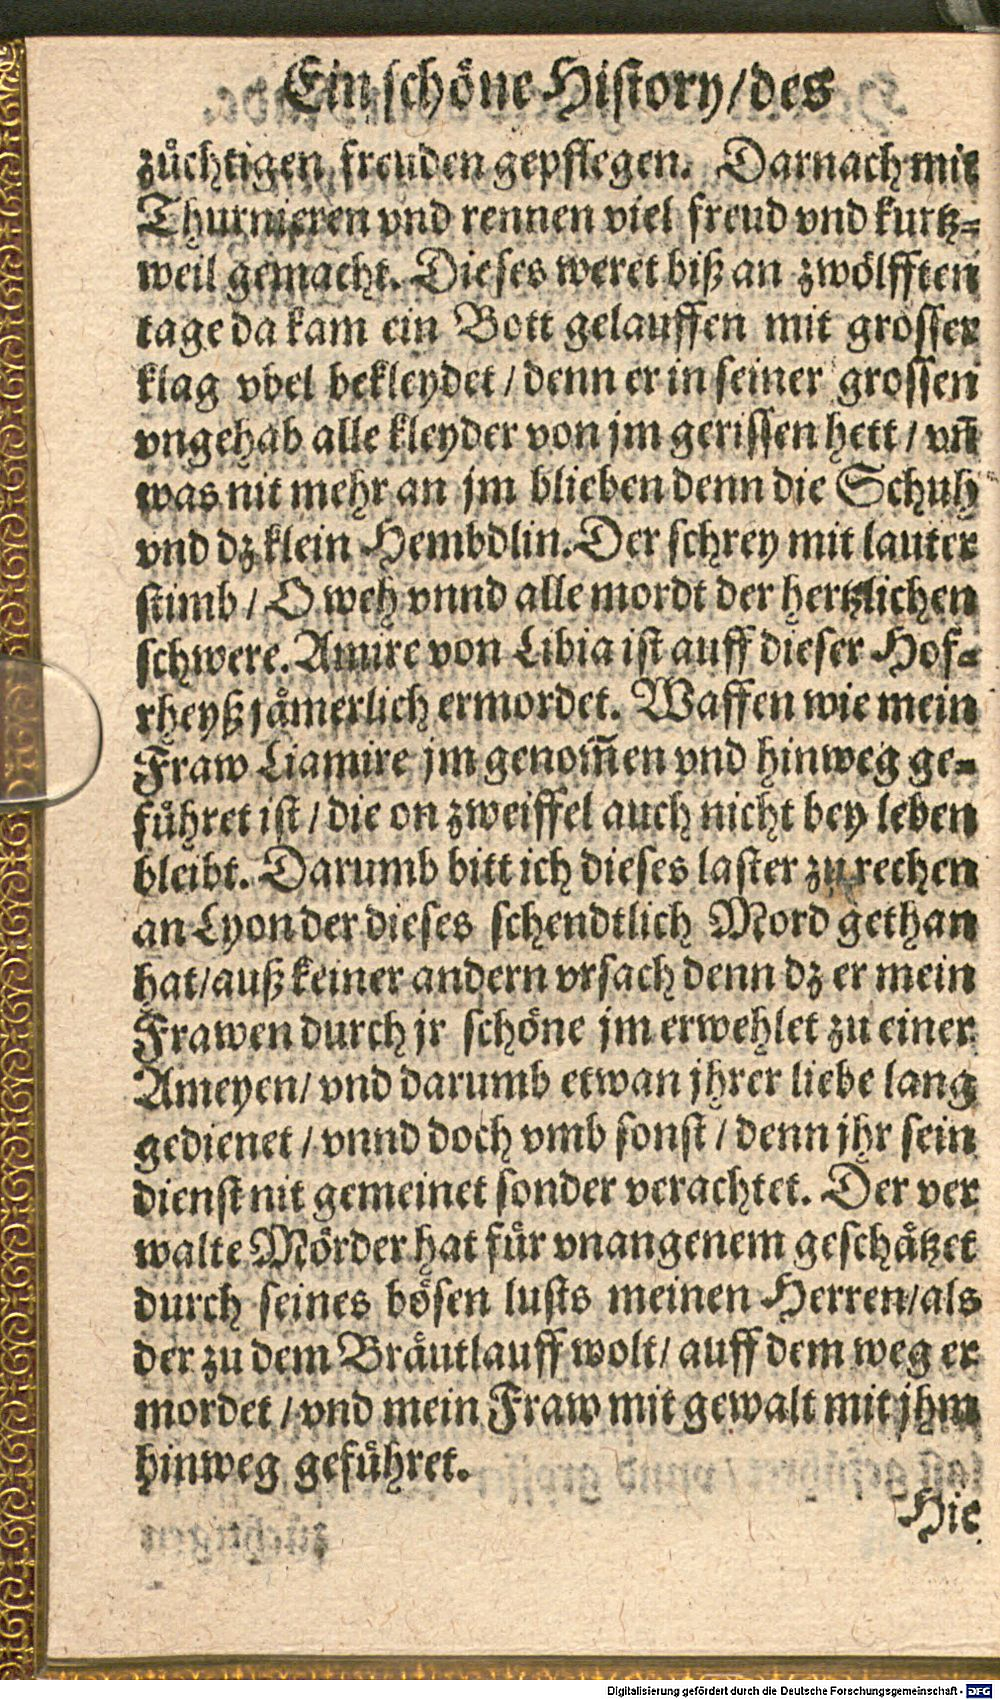 Ein schöne History/des
zůchtigen freuden gepflegen. Darnach mit
Thurnieren vnd rennen viel freud vnd kurtz-
weil gemacht. Dieses weret biß an zwölfften
tage da kam ein Bott gelauffen mit grosser
klag vbel bekleydet / denn er in seiner grossen
vngehab alle kleyder von jm gerissen hett / vñ
was nit mehr an jm blieben denn die Schuh
vnd dz klein Hembdlin. Der schrey mit lauter
stimb / O weh vnnd alle mordt der hertzlichen
schwere. Amire von Libia ist auff dieser Hof-
rheyß jämerlich ermordet. Waffen wie mein
Fraw Liamire jm genom̃en vnd hinweg ge-
führet ist / die on zweiffel auch nicht bey leben
bleibt. Darumb bitt ich dieses laster zu rechen
an Lyon der dieses schendtlich Mord gethan
hat/auß keiner andern vrsach denn dz er mein
Frawen durch jr schöne jm erwehlet zu einer
Ameyen/ vnd darumb etwan jhrer liebe lang
gedienet / vnnd doch vmb sonst / denn jhr sein
dienst nit gemeinet sonder verachtet. Der ver
walte Mörder hat für vnangenem geschätzet
durch seines bösen lusts meinen Herren/als
der zu dem Bräutlauff wolt/ auff dem weg er
mordet / vnd mein Fraw mit gewalt mit jhm
hinweg geführet.
Hie
Digitalisierung gefördert durch die Deutsche Forschungsgemeinschaft - DFG